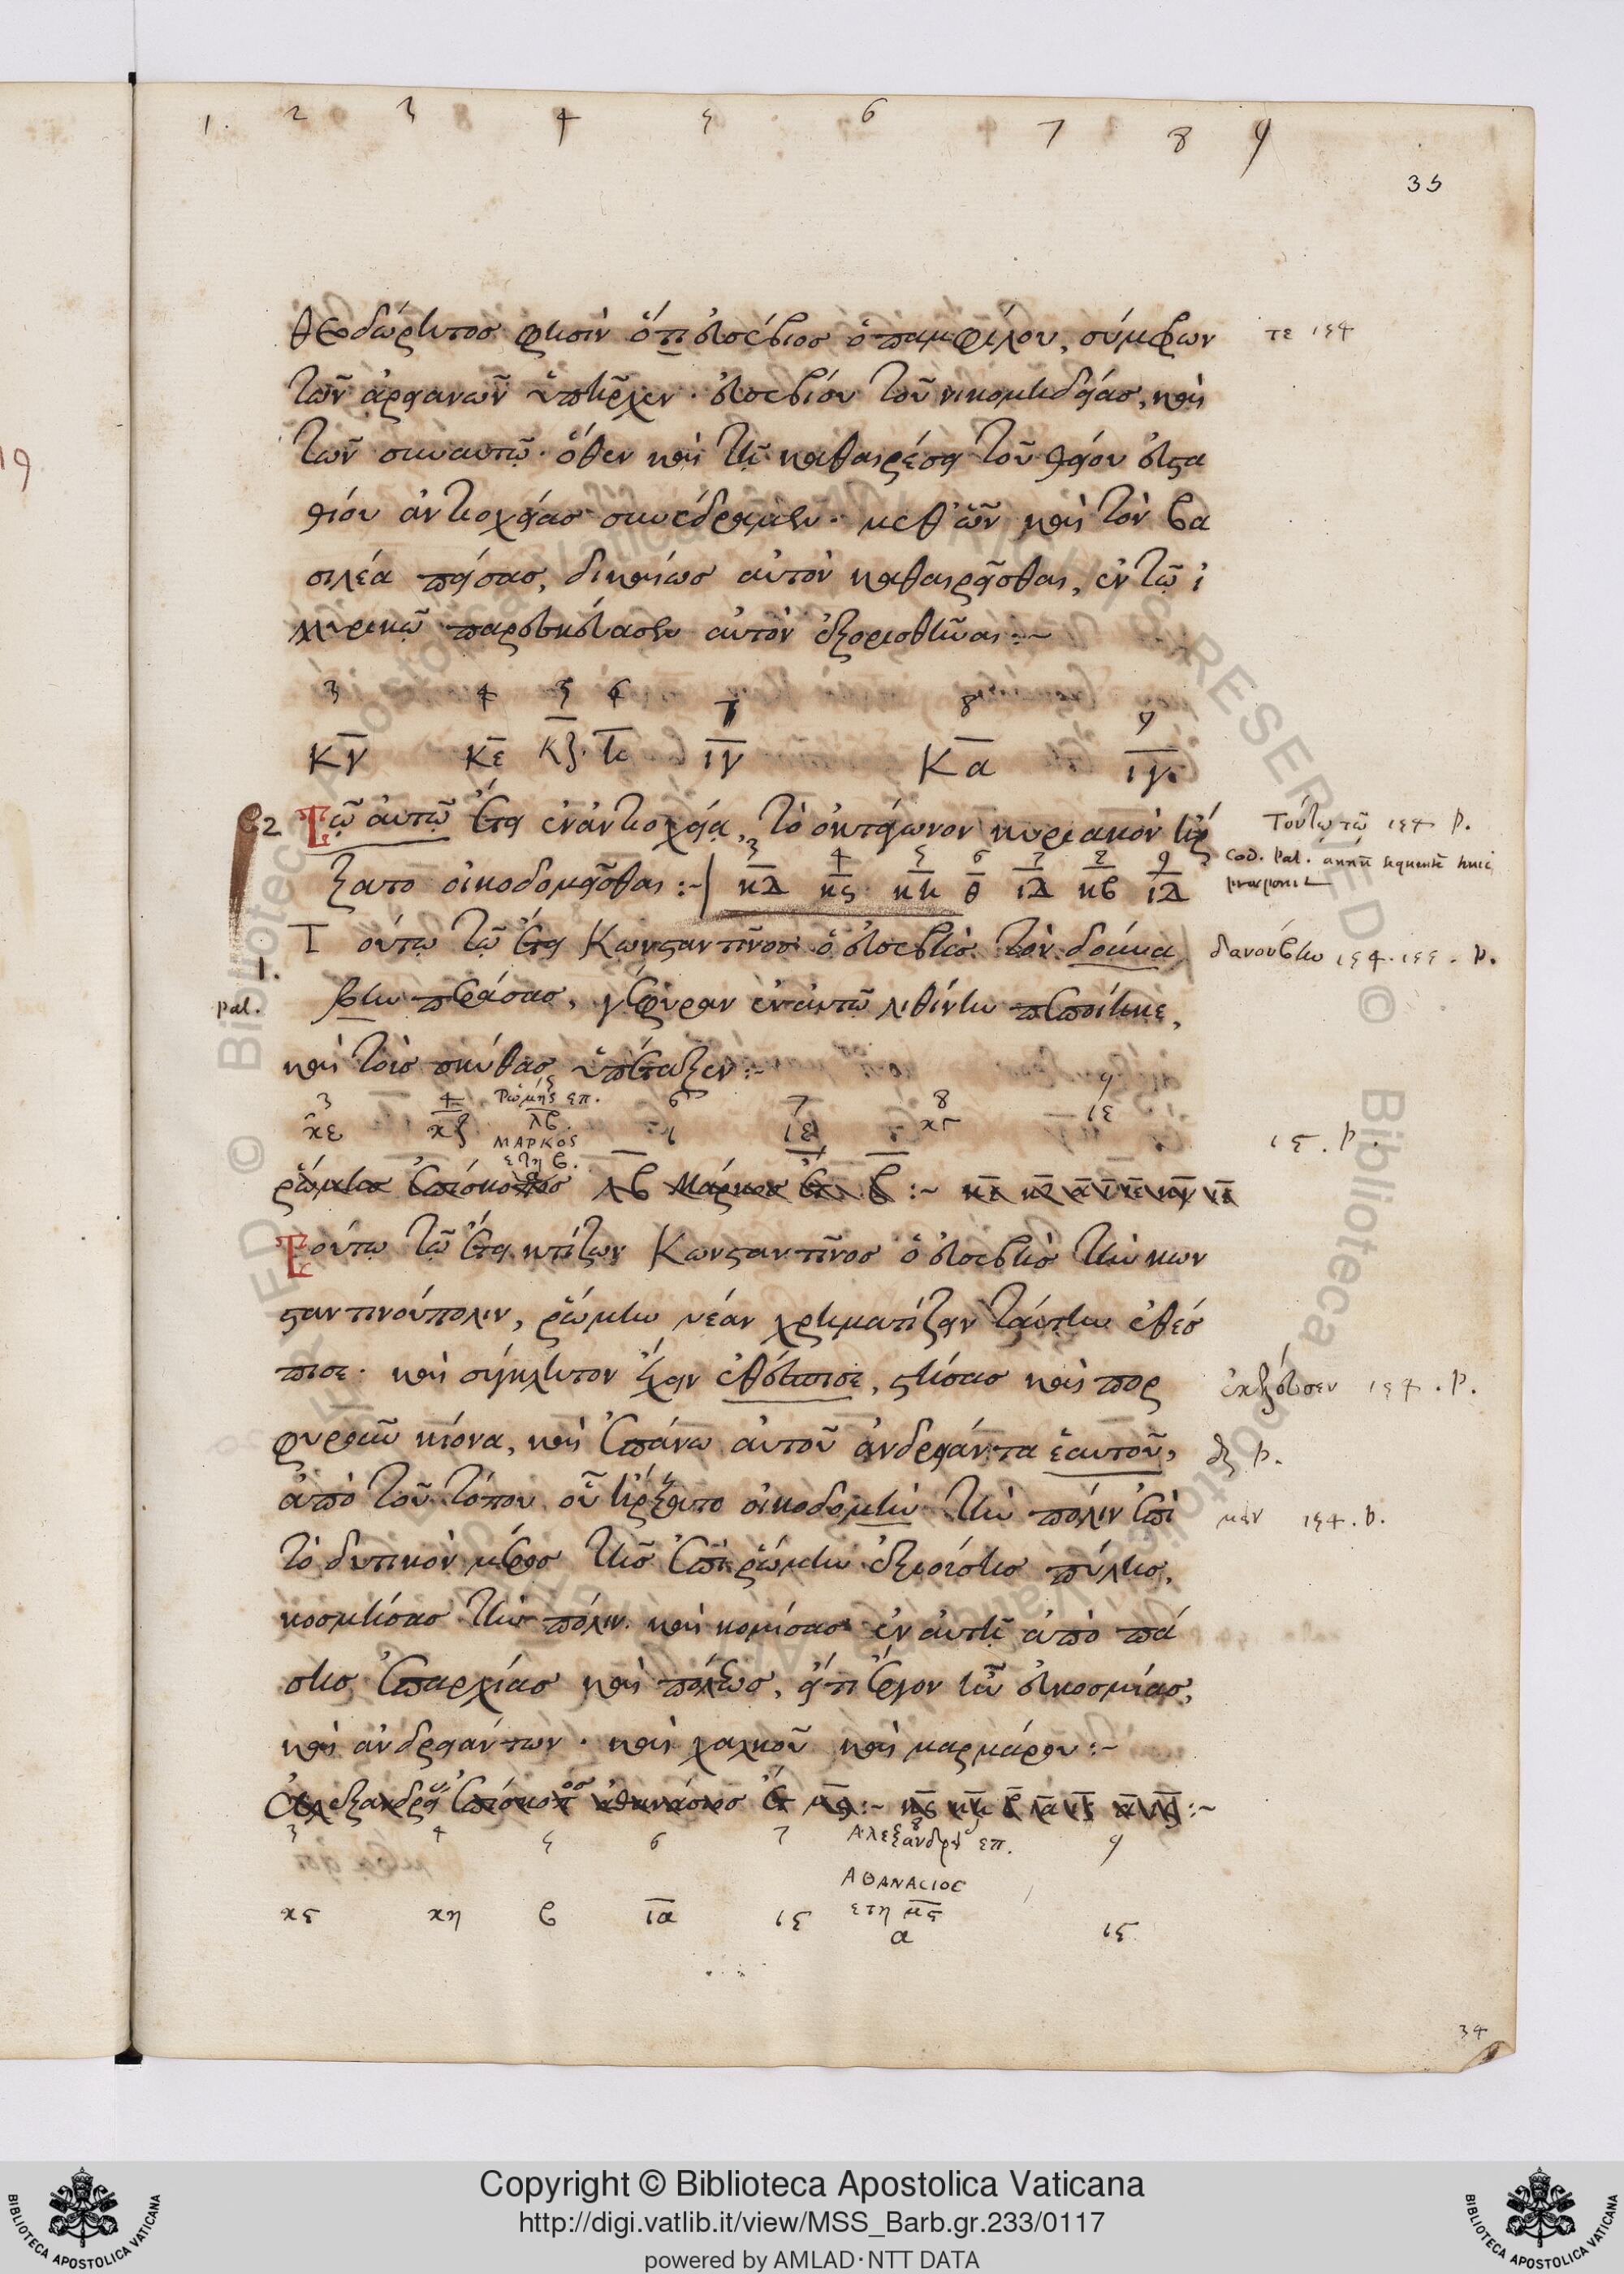 1. 2 3 4 5 6 7 8 9
35
θεοδώρητος φησὶν ὅτι εὐσέβιος ὁ παμφίλου, σύμφων τε 154
τῶν ἀρειανῶν ὑπῆρχεν · εὐσεβίου τοῦ νικομηδείας, καὶ
τῶν σὺν αὐτῷ · ὅθεν καὶ τῇ καθαιρέσει τοῦ θείου εὐστα
θίου ἀντιοχείας συνέδραμεν · μεθ' ὧν καὶ τὸν βα
σιλέα πείσας, δικαίως αὐτὸν καθαιρεῖσθαι, ἐν τῷ ἰ
λλυρικῷ παρεσκεύασεν αὐτὸν ἐξορισθῆναι :~
3 4 5 6 7 8 9
κγ κε κζ η ιγ κα ιγ
2 Τῷ αὐτῷ ἔτει ἐν ἀντιοχείᾳ, τὸ ὀκτάγωνον κυριακὸν ἤρ Τούτῳ τῷ 154 P.
ξατο οἰκοδομεῖσθαι :~ 3 4 5 6 7 8 9 cod. Pal. annum sequentem huic
κδ κς κη θ ιδ κβ ιδ praeponit
Τούτῳ τῷ ἔτει Κωνσταντῖνος ὁ εὐσεβὴς τὸν δούνα δανούβην 154. 155. P.
1.
pal. βην περάσας, γέφυραν ἐν αὐτῷ λιθίνην πεποίηκε,
καὶ τοὺς σκύθας ὑπέταξεν :~
3 4 5 6 7 8 9
Ρώμης επ.
κε κζ λβ. ι ιε κγ ιε
ΜΑΡΚΟΣ
ετη β. 15. P.
ῥώμης ἐπίσκοπος λβ Μάρκος ἔτ. β :~
Τούτῳ τῷ ἔτει κτίζων Κωνσταντῖνος ὁ εὐσεβὴς τὴν κων
σταντινούπολιν, ῥώμην νέαν χρηματίζειν ταύτην ἐθέσ
πισε · καὶ σύγκλητον ἔχειν ἐθέσπισε, στήσας καὶ πορ ἐκέλευσεν 154. P.
φυροῦν κίονα, καὶ ἐπάνω αὐτοῦ ἀνδριάντα ἑαυτοῦ, P.
ἀπὸ τοῦ τόπου οὗ ἤρξατο οἰκοδομὴν τὴν πόλιν ἐπὶ 154. P.
τὸ δυτικὸν μέρος τῆς ἐπὶ ῥώμην ἐξιούσης πύλης,
κοσμήσας τὴν πόλιν. καὶ κομίσας ἐν αὐτῇ ἀπὸ πά
σης ἐπαρχίας καὶ πόλεως, εἴ τι ἔργον ἦν εὐκοσμίας,
καὶ ἀνδριάντων · καὶ χαλκοῦ καὶ μαρμάρου :~
Ἀλεξανδρείας ἐπίσκοπος ἀθανάσιος ἔτ μς :~ κς κη β ια ις α ις :~
3 4 5 6 7 Αλεξανδρ επ. 9
ΑΘΑΝΑCΙΟC
κς κη β ια ις ετη μς ις
α
34
Copyright © Biblioteca Apostolica Vaticana
http://digi.vatlib.it/view/MSS_Barb.gr.233/0117
powered by AMLAD·NTT DATA
BIBLIOTECA APOSTOLICA VATICANA
BIBLIOTECA APOSTOLICA VATICANA